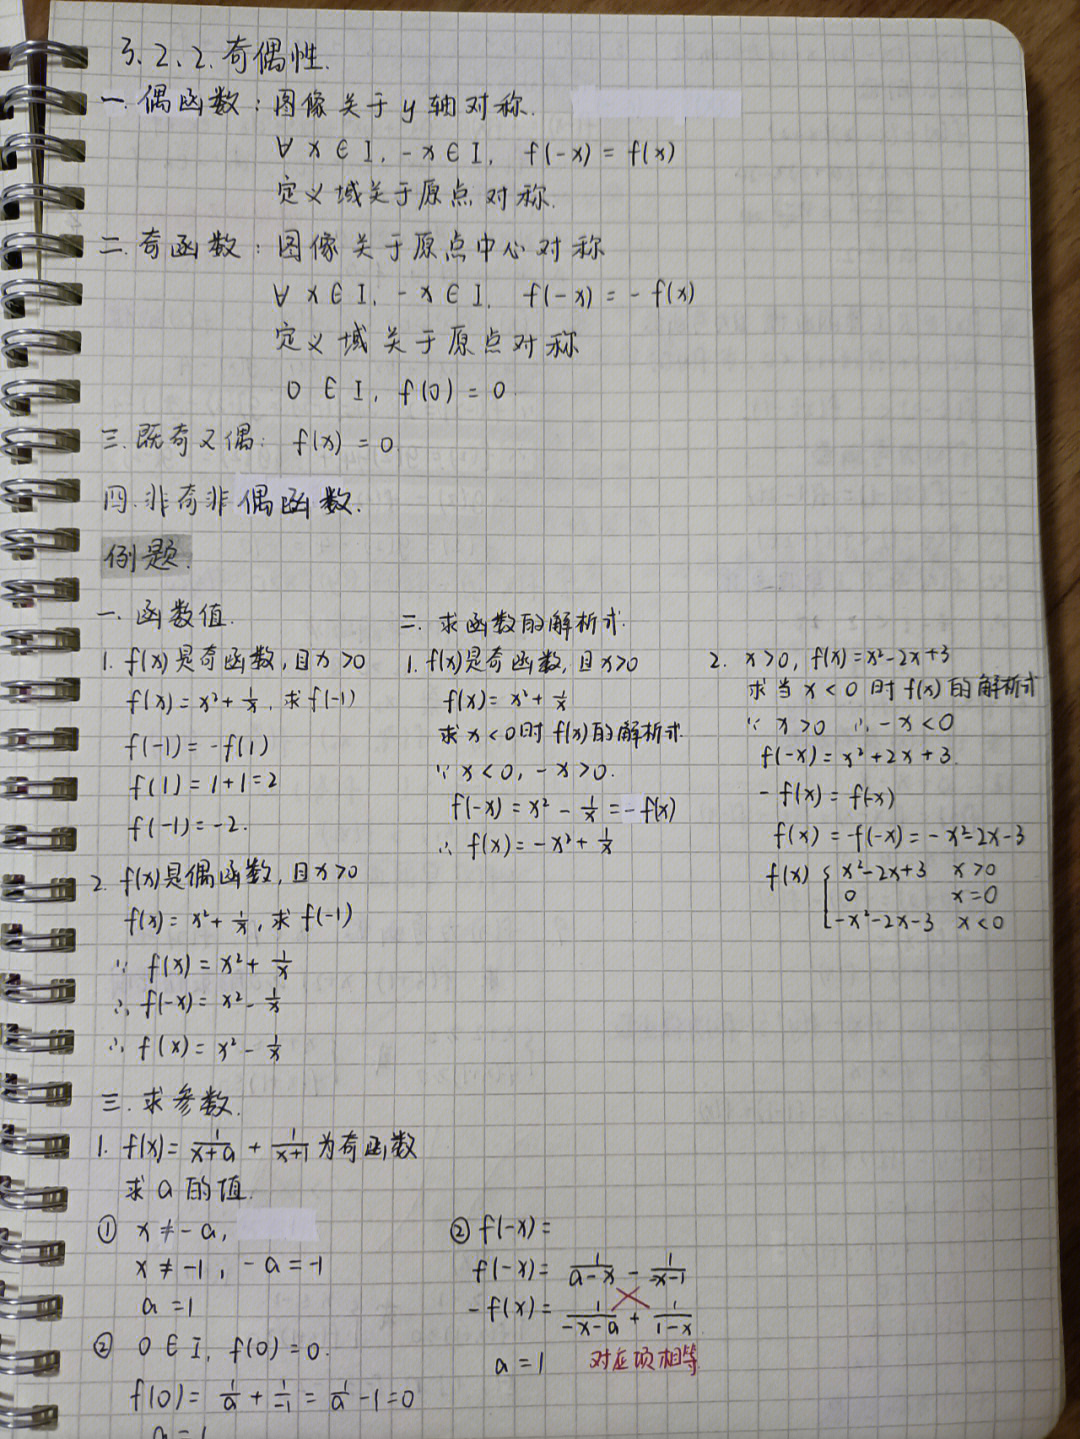 3.2.2.奇偶性.
一.偶函数:图像关于y轴对称.
∀ x∈I, -x∈I, f(-x)=f(x)
定义域关于原点对称.
二.奇函数:图像关于原点中心对称
∀ x∈I, -x∈I, f(-x)=-f(x)
定义域关于原点对称
0∈I, f(0)=0
三.既奇又偶: f(x)=0
四.非奇非偶函数.
例题.
一.函数值.
1. f(x)是奇函数,且x>0
f(x)=x²+1/x, 求f(-1)
f(-1)=-f(1)
f(1)=1+1=2
f(-1)=-2.
2. f(x)是偶函数,且x>0
f(x)=x²+1/x, 求f(-1)
∵ f(x)=x²+1/x
∴ f(-x)=x²-1/x
∴ f(x)=x²-1/x
二.求函数的解析式.
1. f(x)是奇函数,且x>0
f(x)=x²+1/x
求x<0时f(x)的解析式.
∵ x<0, -x>0.
f(-x)=x²-1/x=-f(x)
∴ f(x)=-x²+1/x
2. x>0, f(x)=x²-2x+3
求当x<0时f(x)的解析式
∵ x>0 ∴ -x<0
f(-x)=x²+2x+3.
-f(x)=f(-x)
f(x)=-f(-x)=-x²-2x-3
f(x) { x²-2x+3 x>0
0 x=0
-x²-2x-3 x<0
三.求参数.
1. f(x)=1/(x+a)+1/(x+1)为奇函数
求a的值.
① x≠-a,
x≠-1, -a=-1
a=1
② 0∈I, f(0)=0.
f(0)=1/a+1/-1=1/a-1=0
a=1
② f(-x)=
f(-x)=1/(a-x)-1/(-x-1)
-f(x)=1/(-x-a)+1/(1-x)
a=1 对应项相等.